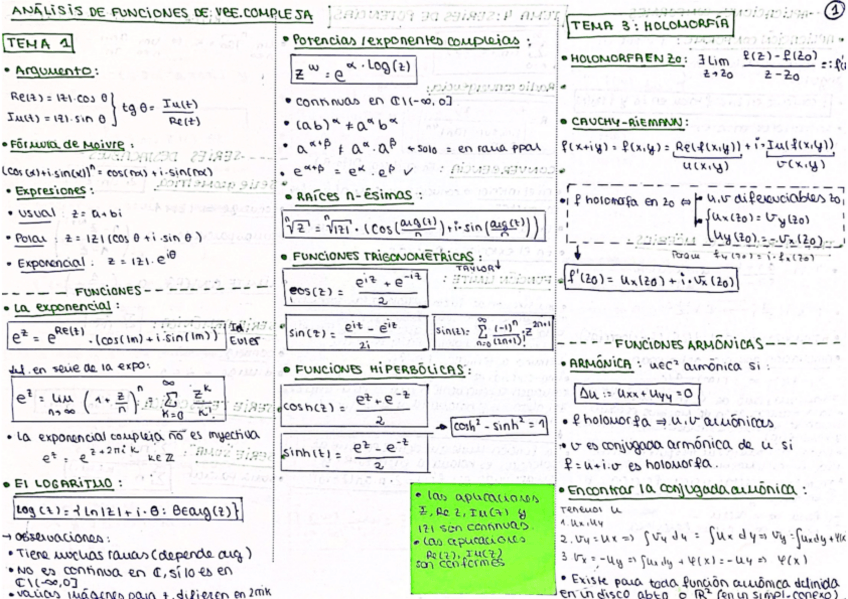 ANÁLISIS DE FUNCIONES DE VBE.COMPLEJA
TEMA 1
• Argumento:
Re(z) = |z|·cos θ
Im(z) = |z|·sin θ } tg θ = Im(z)/Re(z)
• Fórmula de Moivre:
(cos(x)+i·sin(x))ⁿ = cos(nx)+i·sin(nx)
• Expresiones:
• usual: z = a+bi
• Polar: z = |z|(cos θ + i·sin θ)
• Exponencial: z = |z|·e^{iθ}
FUNCIONES
• La exponencial:
e^z = e^{Re(z)}·(cos(Im)+i·sin(Im)) Id Euler
def. en serie de la expo:
e^z = lim_{n→∞} (1 + z/n)^n = Σ_{k=0}^{∞} z^k/k!
• La exponencial compleja no es inyectiva
e^z = e^{z+2πik} k∈ℤ
• El LOGARITMO:
Log(z) = {ln|z| + i·θ : θ∈arg(z)}
→ observaciones:
• Tiene muchas ramas (depende arg)
• No es continua en ℂ, sí lo es en
ℂ\(-∞,0]
• varias imágenes para z, difieren en 2πik
• Potencias/exponentes complejas:
z^w = e^{α·log(z)}
• continuas en ℂ\(-∞,0]
• (ab)^α ≠ a^α b^α
• a^{α+β} ≠ a^α·a^β → solo = en rama ppal
• e^{α+β} = e^α·e^β ✓
• Raíces n-ésimas:
ⁿ√z = ⁿ√|z|·(cos(arg(z)/n)+i·sin(arg(z)/n))
• FUNCIONES TRIGONOMÉTRICAS:
TAYLOR↓
cos(z) = (e^{iz} + e^{-iz})/2
sin(z) = (e^{iz} - e^{-iz})/2i
sin(z) = Σ_{n=0}^{∞} (-1)^n/(2n+1)! z^{2n+1}
• FUNCIONES HIPERBÓLICAS:
cosh(z) = (e^z + e^{-z})/2
→ cosh² - sinh² = 1
sinh(z) = (e^z - e^{-z})/2
• las aplicaciones
z̄, Re z, Im(z) y
|z| son continuas.
• las aplicaciones
Re(z), Im(z)
son conformes
①
TEMA 3: HOLOMORFÍA
• HOLOMORFA EN z0: ∃ lim_{z→z0} (f(z) - f(z0))/(z - z0) =: f'
• CAUCHY-RIEMANN:
f(x+iy) = f(x,y) = Re(f(x,y)) + i·Im(f(x,y))
u(x,y) v(x,y)
• f holomorfa en z0 ⇔ • u,v diferenciables z0
• { ux(z0) = vy(z0)
uy(z0) = -vx(z0)
fy(z0) = i·fx(z0)
f'(z0) = ux(z0) + i·vx(z0)
FUNCIONES ARMÓNICAS
• ARMÓNICA: u∈C² armónica si:
Δu := uxx + uyy = 0
• f holomorfa ⇒ u,v armónicas
• v es conjugada armónica de u si
f = u+i·v es holomorfa.
• Encontrar la conjugada armónica:
tenemos u
1. ux, uy
2. vy = ux ⇒ ∫vy dy = ∫ux dy ⇒ vy = ∫ux dy + φ(x
3. vx = -uy ⇒ ∫ux dy + φ(x) = -uy ⇒ φ(x)
• Existe para toda función armónica definida
en un disco abto o ℝ² (en un simpl. conexo)